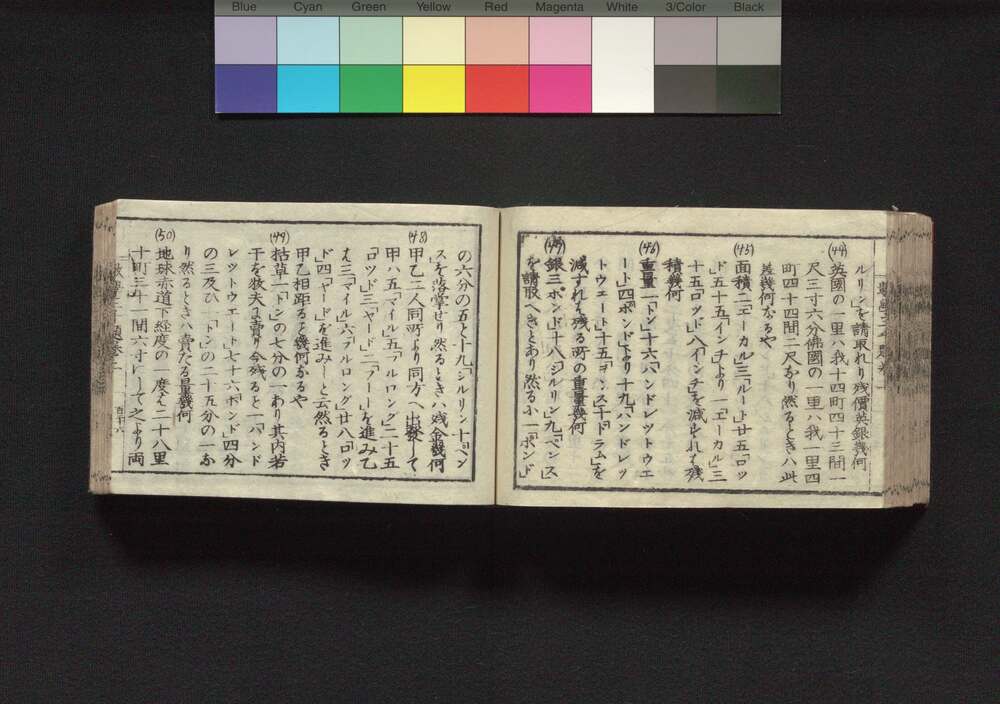 Blue Cyan Green Yellow Red Magenta White 3/Color Black
ルリン」を請取れり残價英銀幾何
(44)
英國の一里ハ我十四町四十三間一
尺三寸六分佛國の一里ハ我一里四
町四十四間二尺なり然るときハ此
差幾何なるや
(45)
面積二「エーカル」三「ルート」廿五「ロッ
ド」五十五「インチ」より一「エーカル」三
十五「ロッド」八「インチ」を減ずれハ残
積幾何
(46)
重量一「トン」十六「ハンドレットウエ
ート」四「ポンド」より十九「ハンドレッ
トウエート」十五「ヲンス」十「ドラム」を
減ずれハ残る所の重量幾何
(47)
銀三「ポンド」十八「シルリン」九「ペンス」
を請取へきとあり然るに一「ポンド」
の六分の五と十九「シルリン」十「ペン
ス」を落掌せり然るときハ残金幾何
(48)
甲乙二人同所より同方へ出發して
甲ハ五「マイル」五「フルロング」二十五
「ロッド」三「ヤード」二「フート」を進み乙
ハ三「マイル」六「フルロング」廿八「ロッ
ド」四「ヤード」を進みしと云然るとき
甲乙相距ること幾何なるや
(49)
枯草一「トン」の七分の一あり其内若
干を牧夫に賣り今残ること一「ハンド
レットウエート」七十六「ポンド」四分
の三及ひ一「トン」の二十五分の一な
り然るときハ賣たる量幾何
(50)
地球赤道下経度の一度ハ二十八里
十町三十一間六寸にして之より両
百十六